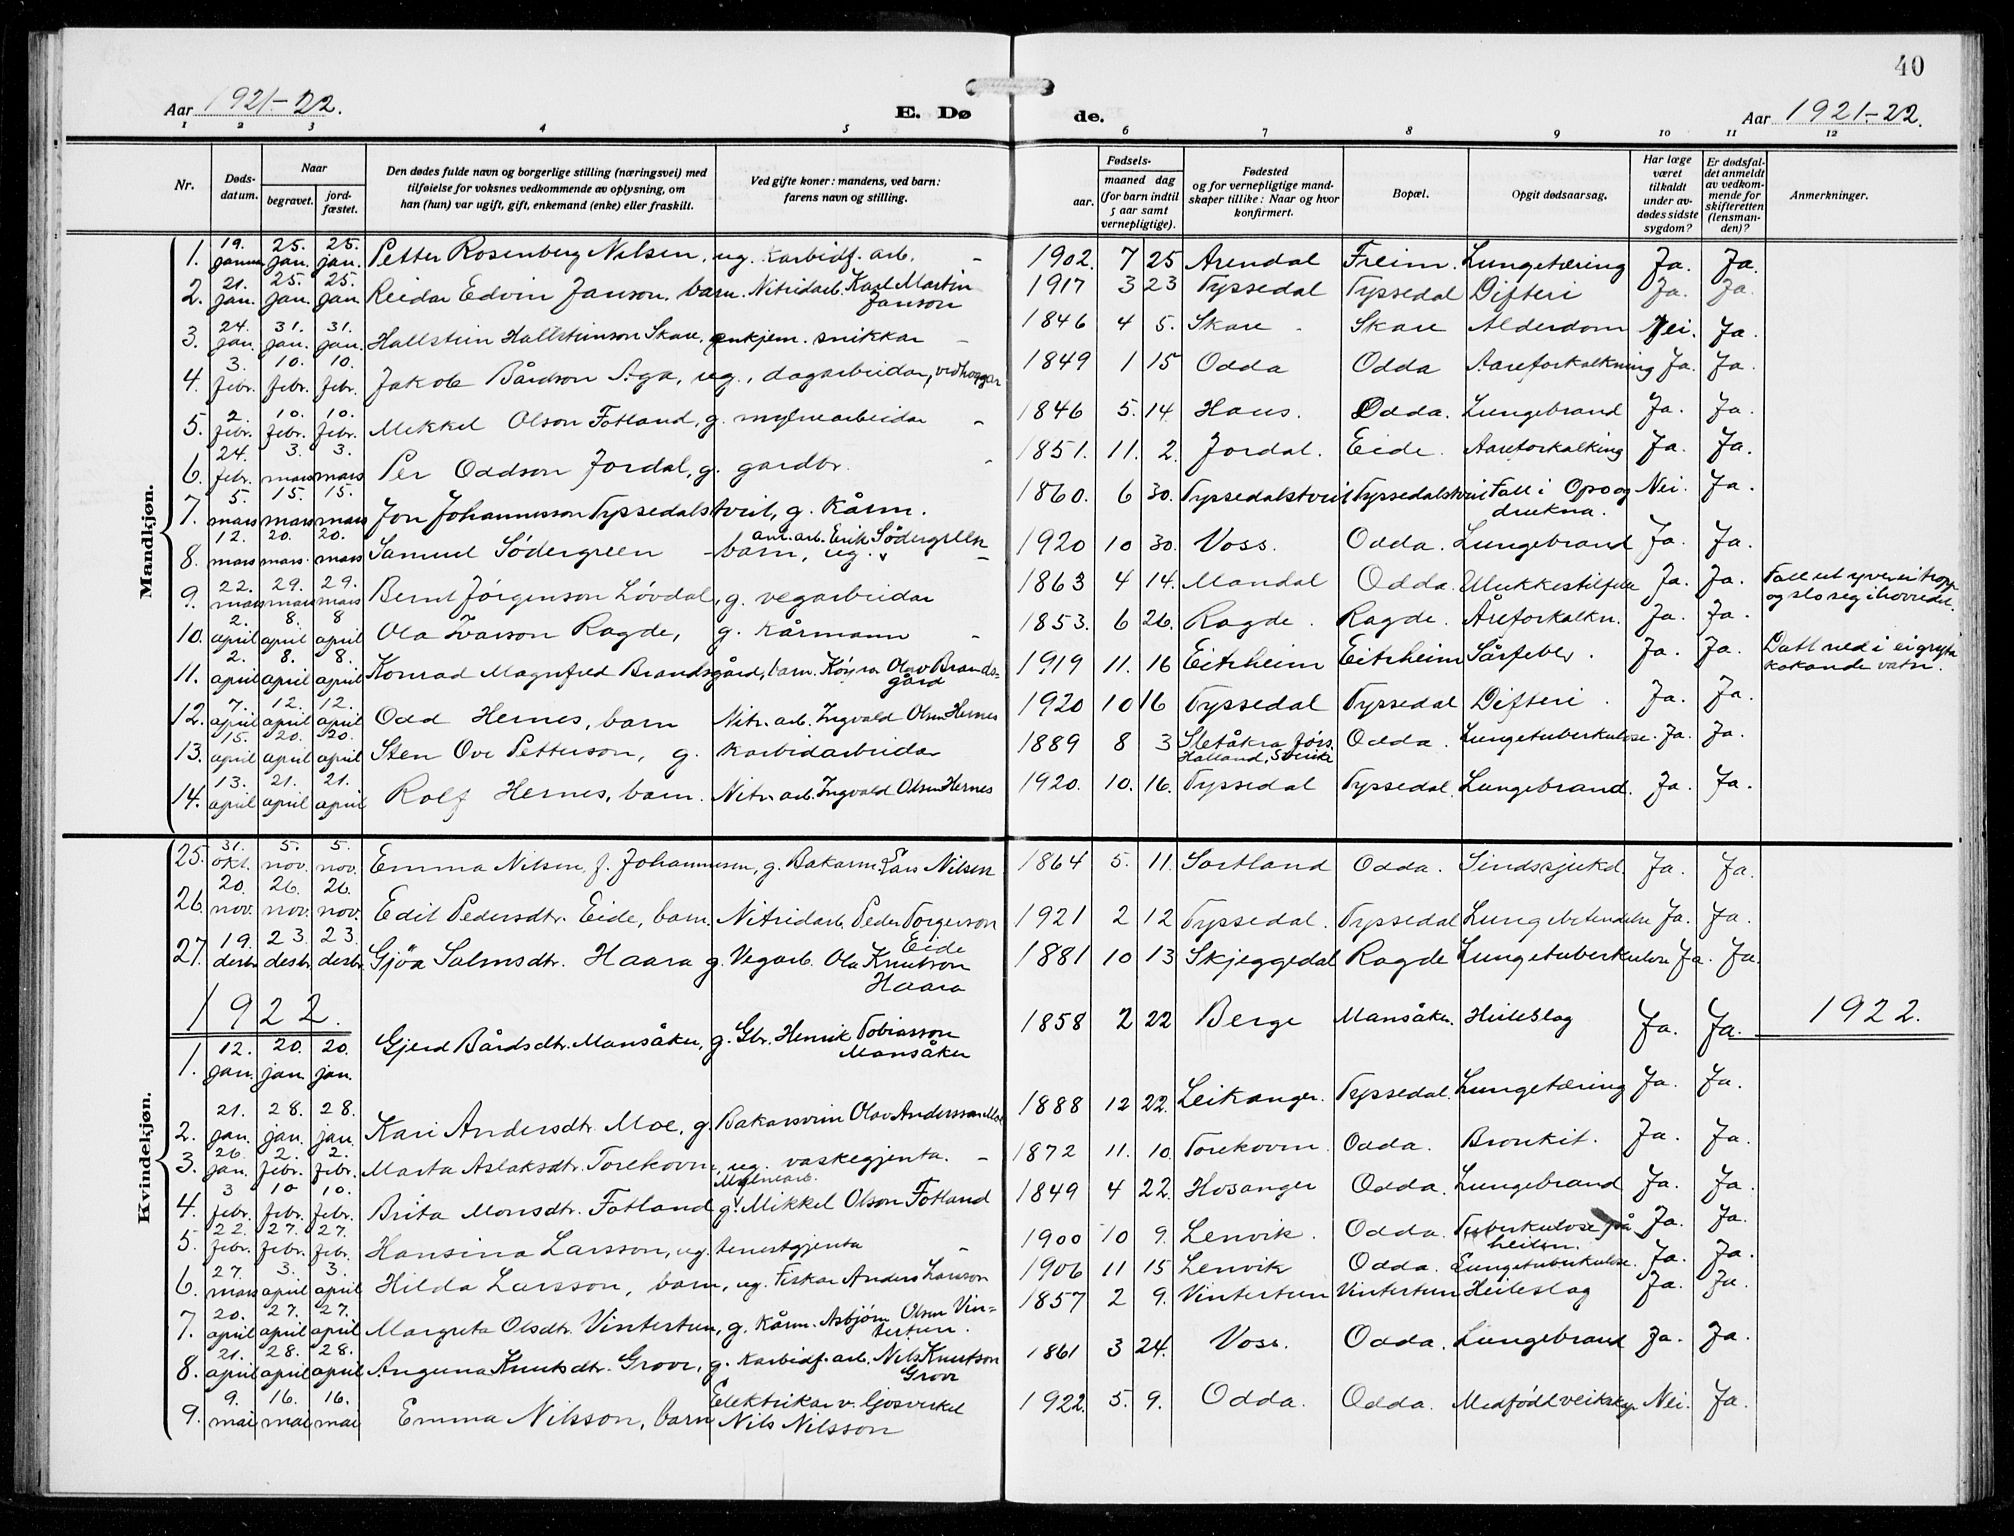 40
Aar 1921-22. E. Dø de. Aar 1921-22.
1 2 3 4 5 6 7 8 9 10 11 12
Nr. Dødsdatum. Naar begravet. jordfæstet. Den dødes fulde navn og borgerlige stilling (næringsvei) med tilføielse for voksnes vedkommende av oplysning, om han (hun) var ugift, gift, enkemand (enke) eller fraskilt. Ved gifte koner: mandens, ved barn: farens navn og stilling. Fødsels- aar. maaned dag (for barn indtil 5 aar samt vernepligtige). Fødested og for vernepligtige mandskaper tillike: Naar og hvor konfirmert. Bopæl. Opgit dødsaarsag. Har læge været tilkaldt under avdødes sidste sygdom? Er dødsfaldet anmeldt av vedkommende for skifteretten (lensmanden)? Anmerkninger.
Mandkjøn.
1. 19. januar 25. jan. 25. jan. Petter Rosenberg Nilsen, ug. karbidf. arb. - 1902. 7 25 Arendal Freim. Lungetæring Ja. Ja.
2. 21. jan. 25. jan. 25. jan. Reidar Edvin Janson, barn. Nitridarb. Karl Martin Janson 1917 3 23 Tyssedal Tyssedal Difteri Ja. Ja.
3. 24. jan. 31. jan. 31. jan. Hallstein Hallsteinson Skare, enkjem. snikkar - 1846 4 5. Skare - Skare Alderdom Nei. Ja.
4. 3. febr. 10. febr. 10. febr. Jakob Bårdson Aga, ug., dagarbeidar, vedhoggar 1849 1 15 Odda Odda Aareforkalkning Ja. Ja.
5. 2. febr. 10. febr. 10. febr. Mikkel Olson Fotland, g. mylnearbeidar - 1846 5. 14. Haus. Odda. Lungebrand Ja. Ja.
6. 24. febr. 3. mars 3. mars Per Oddson Jordal, g. gardbr. - 1851. 11. 2. Jordal. Eide. Aareforkalking Ja. Ja.
7. 5. mars 15. mars 15. mars Jon Johannesson Tyssedalstveit, g. kårm. 1860. 6 30. Tyssedalstveit Tyssedalstveit Fall i Opo og drukna. Nei. Ja.
8. 12. mars 20. mars. 20. mars Samuel Södergreen - barn, ug. anl. arb. Erik Södergreen - 1920 10 30. Voss. Odda. Lungebrand Ja. Ja.
9. 22. mars 29. mars 29. mars Bernt Jørgenson Løvdal, g. vegarbeidar 1863 4 14. Mandal Odda. Ulukkestilfelle Ja. Ja. Fall ut yver ei tropp og slo seg i hovudet.
10. 2. april 8. april 8 april Ola Ivarson Ragde, g. kårmann - 1853. 6 26. Ragde. Ragde. Åreforkalkn. Ja. Ja.
11. 2. april 8. april 8. april Konrad Magnfred Brandsgård, barn. Køyra Olav Brandsgård 1919 11. 16 Eitrheim Eitrheim Sårfeber. Ja. Ja. Datt ned i ei gryta kokande vatn.
12. 7. april 12. april 12. april Odd Hernes, barn Nitr. arb. Ingvald Olsen Hernes 1920 10 16 Tyssedal Tyssedal Difteri. Ja. Ja.
13. 15. april 20. april 20. april Sten Ove Petterson, g. karbidarbeidar 1889 8 3 Sletåkra Jörs. Halland, Sverike Odda. Lungetuberkulose. Ja. Ja.
14. 13. april 21. april 21. april Rolf Hernes, barn. Nitr. arb. Ingvald Olsen Hernes 1920. 10. 16. Tyssedal Tyssedal. Lungebrand. Ja. Ja.
Kvindekjøn.
25. 31. okt. 5. nov. 5. nov. Emma Nilsen f. Johannesen, g. Bakarm. Lars Nilsen 1864 5. 11. Sortland Odda. Sindssjukd. Ja. Ja.
26. 20. nov. 26. nov. 26. nov. Edit Pedersdtr. Eide, barn. Nitridarb. Peder Torgerson Eide 1921 2 12 Tyssedal. Tyssedal Lungebetendelse Ja. Ja.
27. 19. desbr. 23. desbr. 23. desbr. Gjöa Salmsdtr. Haara g. Vegarb. Ola Knutson Haara 1881 10 13 Skjeggedal Ragde Lungetuberkulose Ja. Ja.
1922. 1922.
1. 12. jan. 20. jan. 20. jan. Gjerd Bårdsdtr. Mansåker, g. Gbr. Henrik Tobiasson Mansåker 1858 2 22 Berge Mansåker. Heileslag Ja. Ja.
2. 21. jan. 28. jan. 28. jan. Kari Andersdtr. Moe, g. Bakarsvein Olav Andersson Moe 1888 12 22. Leikanger. Tyssedal. Lungetæring Ja. Ja.
3. 26. jan. 2. febr. 2. febr. Marta Aslaksdtr. Torekovn, ug. vaskegjenta. - 1872 11. 10. Torekovm Odda. Bronkit. Ja. Ja.
4. 3 febr. 10 febr. 10. febr. Brita Monsdtr. Fotland g. Mylnearb. Mikkel Olson Fotland 1849 4 22. Hosanger Odda. Lungebrand Ja. Ja.
5. 22. febr. 27. febr. 27. febr. Hansina Larsson, ug. tenestgjenta - 1900 10 9. Lenvik. Odda. Tuberkulose på heilen. Ja. Ja.
6. 27. mars 3. april 3. april Hilda Larsson, barn, ug. Fiskar Anders Larsson 1906 11 15 Lenvik Odda. Lungetuberkulose. Ja. Ja.
7. 20. april 27. april 27. april Margreta Olsdtr. Vintertun, g. kårm. Asbjørn Olsen Vintertun. 1857 2 9. Vintertun Vintertun Heileslag Ja. Ja.
8. 21. april 28. april 28. april Anguna Knutsdtr. Grove, g. karbidf. arb. Nils Knutson Grove 1861 3 24. Voss. Odda. Lungebrand Ja. Ja.
9. 9. mai 16. mai 16. mai Emma Nilsson, barn Elektrikar v. Gjosvirkel Nils Nilsson 1922. 5. 9. Odda. Odda. Medfödt veikskap Nei. Ja.